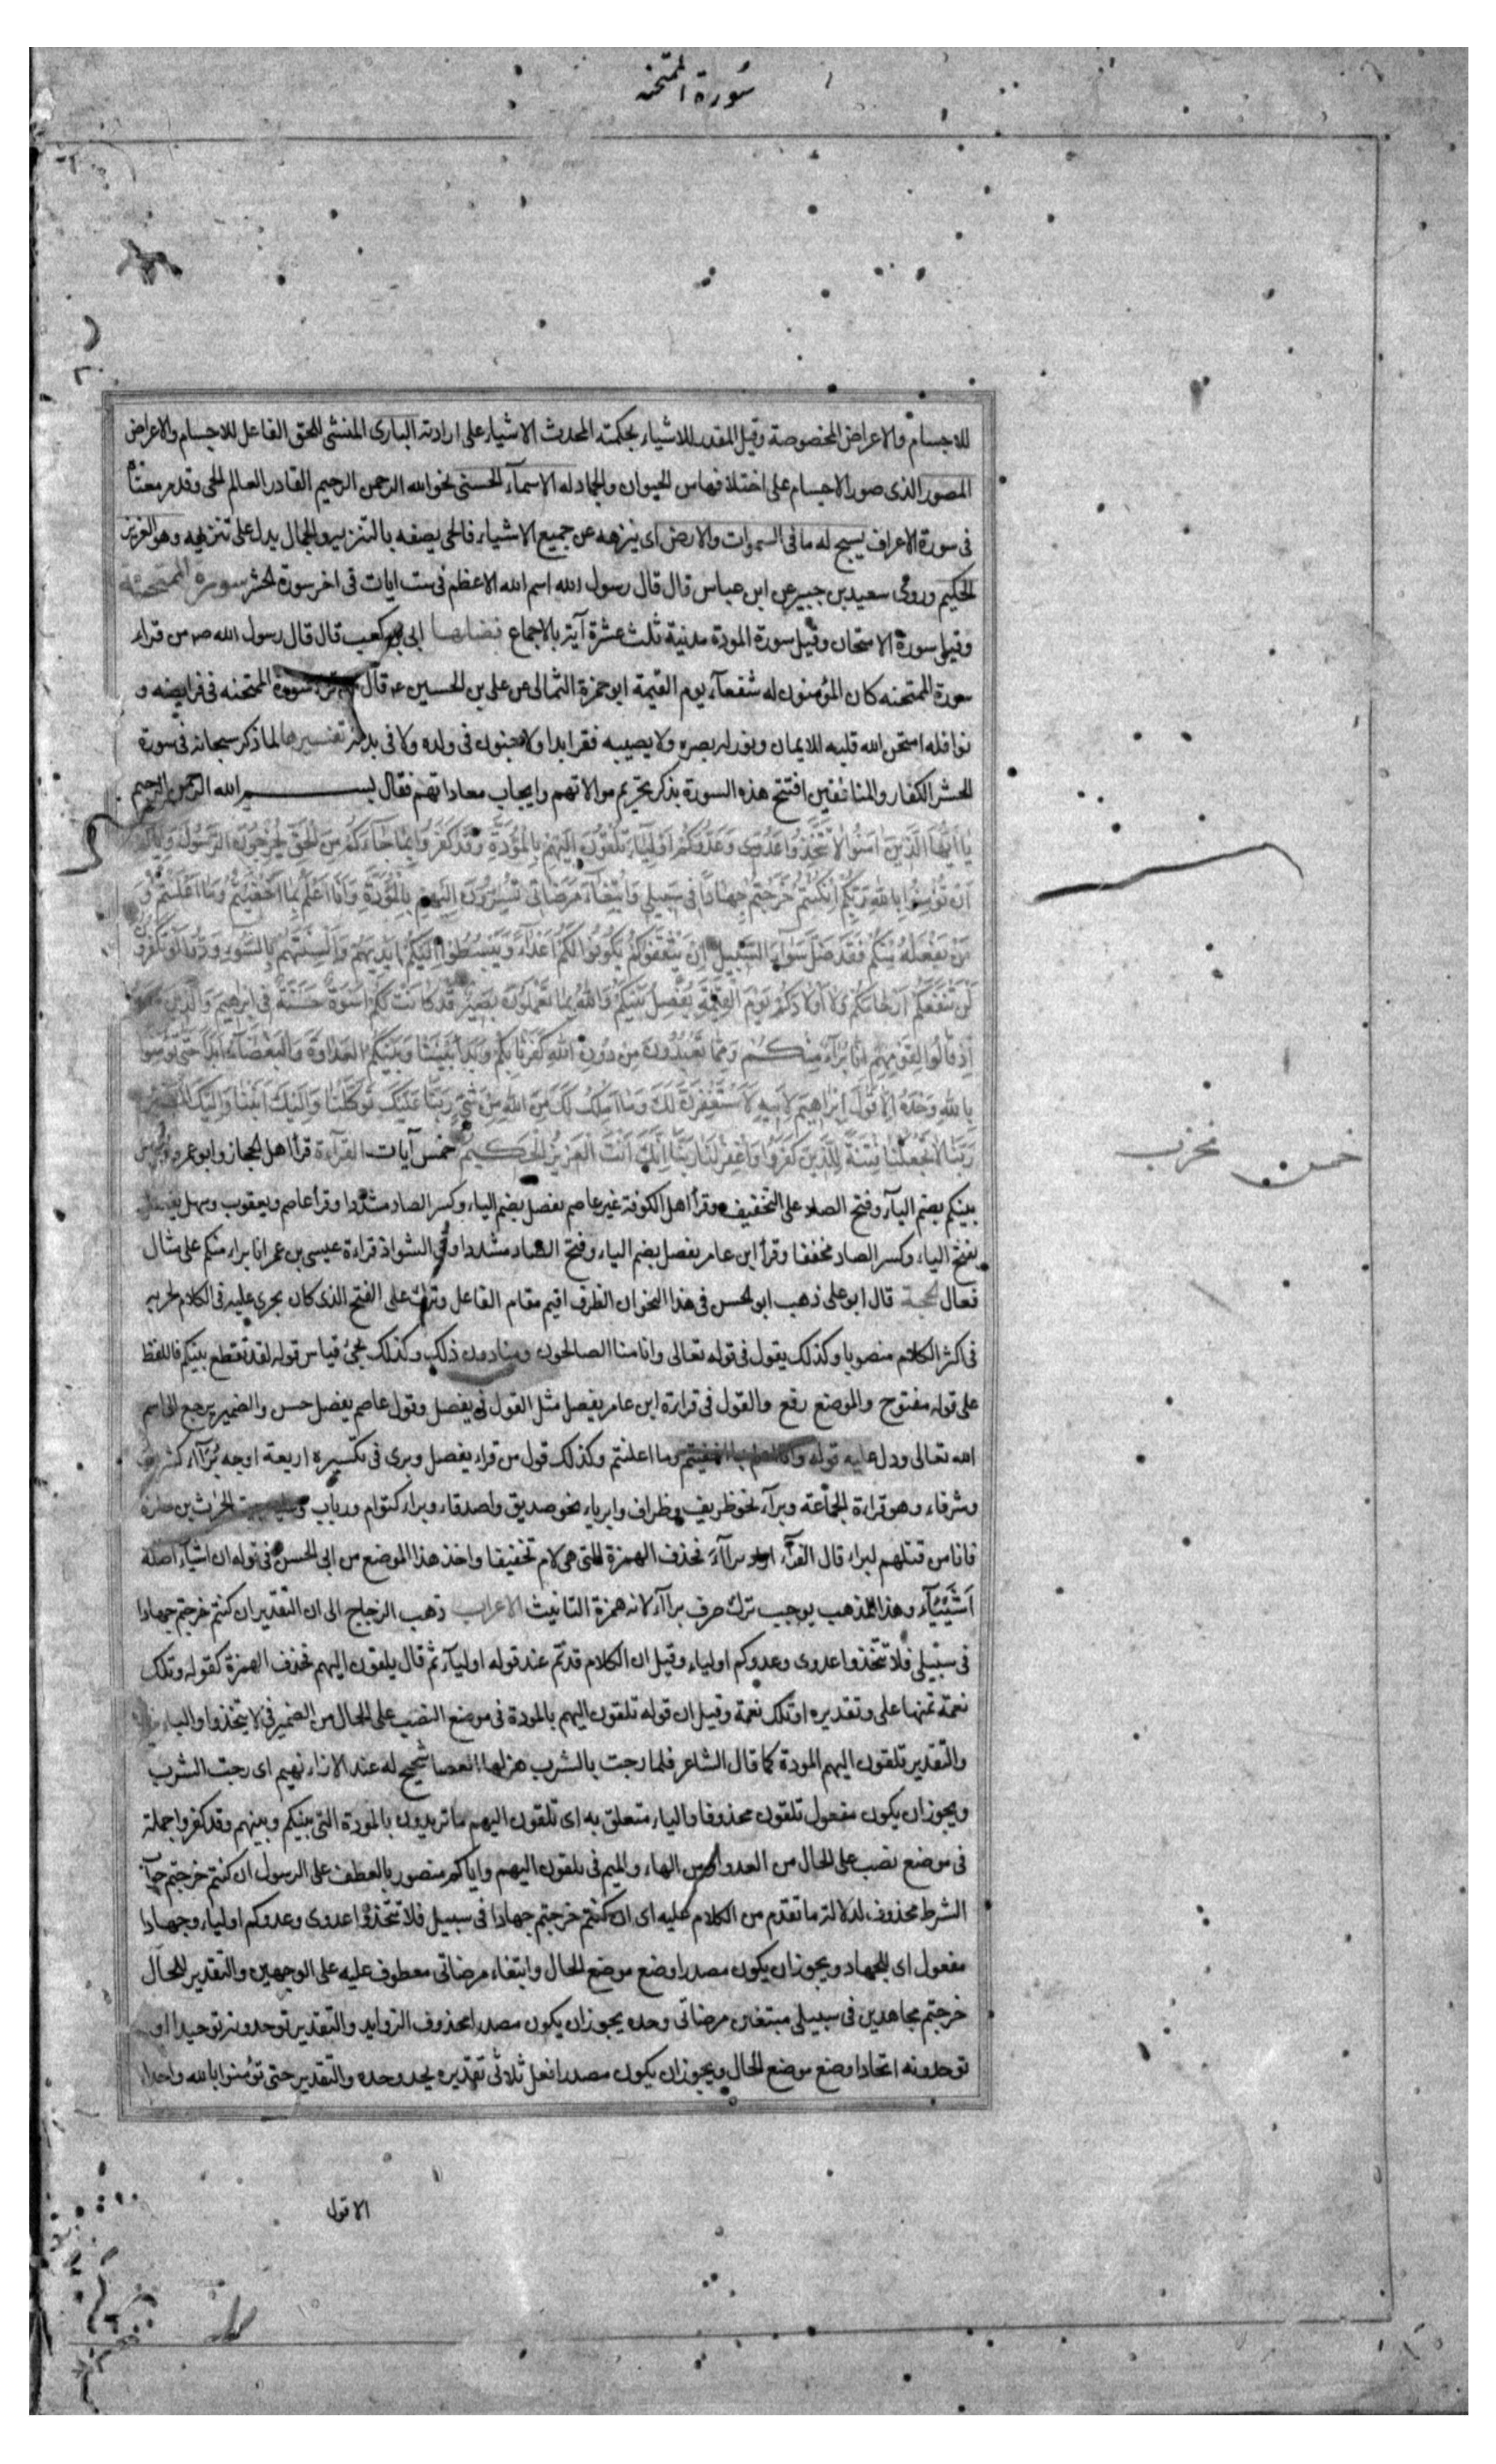 سورة الممتحنه
للاجسام والاعراض المخصوصة وقيل المقدر للاشياء بحكمته المحدث الاشياء على ارادته البارى المنشئ للخق الفاعل للاجسام والاعراض
المصور الذى صور الاجسام على اختلافها من الحيوان والجماد له الاسمآء الحسنى نحو الله الرحمن الرحيم القادر العالم الحى وقد مر معناه
فى سورة الاعراف يسبح له ما فى السموات والارض اى ينزهه عن جميع الاشياء فالحى يصفه بالتنزيه والجمال يدل على تنزيهه وهو العزيز
الحكيم وروى سعيد بن جبير عن ابن عباس قال قال رسول الله اسم الله الاعظم فى ست ايات فى اخر سورة الحشر سورة الممتحنة
وقيل سورة الامتحان وقيل سورة المودة مدنية ثلث عشرة آية بالاجماع فضلها ابى بن كعب قال قال رسول الله ص من قراء
سورة الممتحنه كان المؤمنون له شفعآء يوم القيمة ابو حمزة الثمالى عن على بن الحسين ع قال من قراء سورة الممتحنه فى فرايضه و
نوافله امتحن الله قلبه للايمان ونور له بصره ولا يصيبه فقر ابدا ولا جنون فى ولده ولا فى بدنه تفسيرها لما ذكر سبحانه فى سورة
الحشر الكفار والمنافقين افتتح هذه السورة بذكر تحريم موالاتهم وايجاب معاداتهم فقال بسم الله الرحمن الرحيم
يا ايها الذين امنوا لا تتخذوا عدوى وعدوكم اولياء تلقون اليهم بالمودة وقد كفروا بما جاءكم من الحق يخرجون الرسول واياكم
ان تؤمنوا بالله ربكم ان كنتم خرجتم جهادا فى سبيلى وابتغآء مرضاتى تسرون اليهم بالمودة وانا اعلم بما اخفيتم وما اعلنتم و
من يفعله منكم فقد ضل سوآء السبيل ان يثقفوكم يكونوا لكم اعداء ويبسطوا اليكم ايديهم والسنتهم بالسوء وودوا لو تكفرون
لن تنفعكم ارحامكم ولا اولادكم يوم القيمة يفصل بينكم والله بما تعملون بصير قد كانت لكم اسوة حسنة فى ابرهيم والذين معه
اذ قالوا لقومهم انا برآء منكم ومما تعبدون من دون الله كفرنا بكم وبدا بيننا وبينكم العداوة والبغضآء ابدا حتى تؤمنوا
بالله وحده الا قول ابراهيم لابيه لاستغفرن لك وما املك لك من الله من شئ ربنا عليك توكلنا واليك انبنا واليك المصير
ربنا لا تجعلنا فتنة للذين كفروا واغفر لنا ربنا انك انت العزيز الحكيم خمس آيات القرآءة قرأ اهل الحجاز وابو عمرو يفصل
خمس نحزب
بينكم بضم اليآء وفتح الصاد على التخفيف وقرأ اهل الكوفة غير عاصم يفصل بضم الياء وكسر الصاد مشددا وقرأ عاصم ويعقوب وسهل يفصل
بفتح الياء وكسر الصاد مخففا وقرأ ابن عامر يفصل بضم الياء وفتح الصاد مشددا وفى الشواذ قراءة عيسى بن عمر انا براء منكم على مثال
فعال الحجة قال ابو على ذهب ابو الحسن فى هذا النحو ان الظرف اقيم مقام الفاعل وترك على الفتح الذى كان يجرى عليه فى الكلام لجريه
فى اكثر الكلام منصوبا وكذلك يقول فى قوله تعالى وانا منا الصالحون ومنا دون ذلك وكذلك يجئ قياس قوله لقد تقطع بينكم فاللفظ
على قوله مفتوح والموضع رفع والقول فى قراءة ابن عامر يفصل مثل القول فى يفصل وقول عاصم يفصل حسن والضمير يرجع الى اسم
الله تعالى ودل عليه قوله وانا اعلم بما اخفيتم وما اعلنتم وكذلك قول من قراء يفصل وبرى فى تكسيره اربعة اوجه برآء كشريف
وشرفاء وهو قراءة الجماعة وبرآء نحو ظريف وظراف وابرياء نحو صديق واصدقاء وبراء كتوام ورباب الحرث بن حلزة
فانا من قتلهم لبراء قال الفرّآء اراد برآاء فحذف الهمزة التى هى لام تخفيفا واخذ هذا الموضع من ابى الحسن فى قوله ان اشيآء اصله
اشيئآء وهذا المذهب يوجب ترك صرف برآاء لانه همزة التانيث الاعراب ذهب الزجاج الى ان التقدير ان كنتم خرجتم جهادا
فى سبيلى فلا تتخذوا عدوى وعدوكم اولياء وقيل ان الكلام قد تم عند قوله اوليآء ثم قال يلقون اليهم فحذف الهمزة كقوله وتلك
نعمة تمنها على وتقديره اوتلك نعمة وقيل ان قوله تلقون اليهم بالمودة فى موضع النصب على الحال من الضمير فى لا يتخذوا والباء
والتقدير تلقون اليهم المودة كما قال الشاعر فلما رجت بالشرب هز لها العصا شحيح له عند الازاء نهيم اى رجت الشرب
ويجوز ان يكون مفعول تلقون محذوفا والباء متعلق به اى تلقون اليهم ما تريدون بالمودة التى بينكم وبينهم وقد كفروا جملة
فى موضع نصب على الحال من العدو او من الهاء والميم فى تلقون اليهم واياكم منصور بالعطف على الرسول ان كنتم خرجتم جزآء
الشرط محذوف لدلالة ما تقدم من الكلام عليه اى ان كنتم خرجتم جهادا فى سبيل فلا تتخذوا عدوى وعدوكم اولياء وجهادا
مفعول اى للجهاد ويجوز ان يكون مصدرا وضع موضع الحال وابتغاء مرضاتى معطوف عليه على الوجهين والتقدير للحال
خرجتم مجاهدين فى سبيلى مبتغين مرضاتى وحده يجوز ان يكون مصدرا محذوف الزوايد والتقدير توحدونه توحيدا او
توحدونه اتحادا وضع موضع الحال ويجوز ان يكون مصدر افعل ثلاثى تقديره يحد وحده والتقدير حتى تؤمنوا بالله واحدا
الا قول